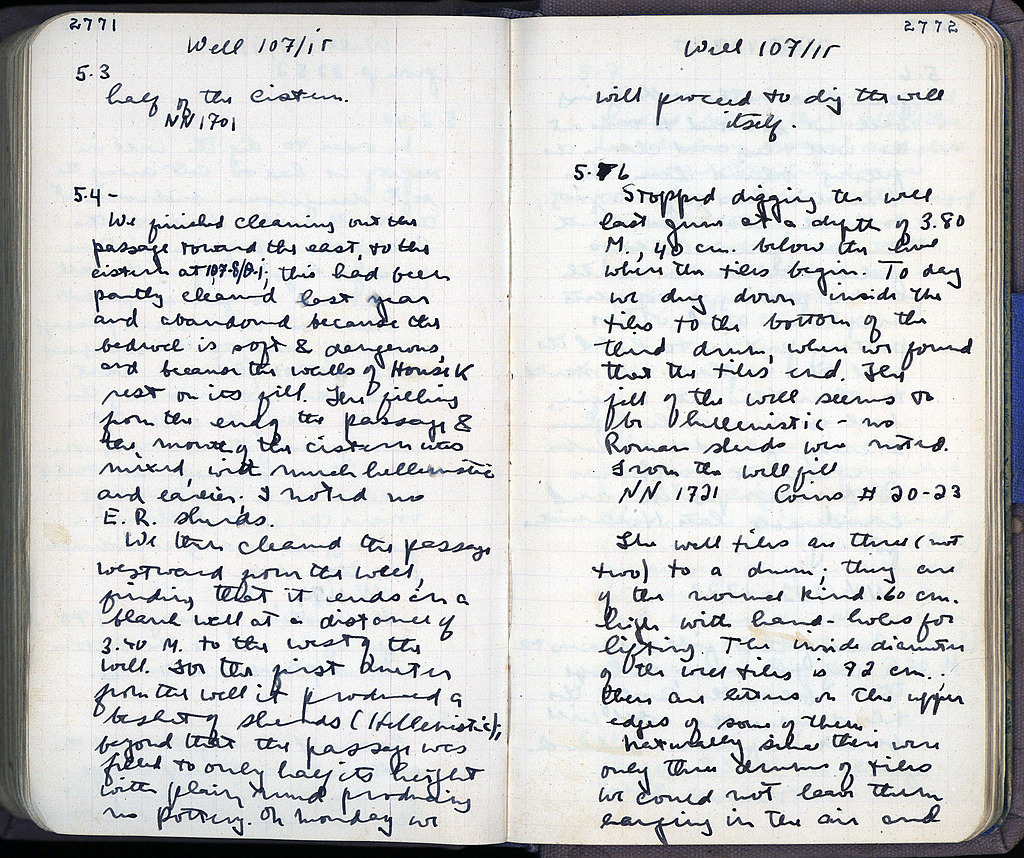 2771
Well 107/ΙΓ
5.3
half of the cistern.
NN 1701
5.4 -
We finished cleaning out the
passage toward the east, to the
cistern at 107-8/Θ-Ι; this had been
partly cleaned last year
and abandoned because the
bedrock is soft & dangerous,
and because the walls of House K
rest on its fill. The filling
from the end of the passage &
the mouth of the cistern was
mixed, with much hellenistic
and earlier. I noted no
E. R. sherds.
We then cleaned the passage
westward from the well,
finding that it ends in a
blank wall at a distance of
3.40 M. to the west of the
well. For the first meter
from the well it produced a
basket of sherds (Hellenistic);
beyond that the passage was
filled to only half its height
with plain mud producing
no pottery. On Monday we
2772
Well 107/ΙΓ
will proceed to dig the well
itself.
5.6
Stopped digging the well
last June at a depth of 3.80
M., 40 cm. below the level
where the tiles begin. To day
we dug down inside the
tiles to the bottom of the
third drum, when we found
that the tiles end. The
fill of the well seems to
be hellenistic - no
Roman sherds were noted.
From the well fill
NN 1721 Coins # 20-23
The well tiles are three (not
two) to a drum; they are
of the normal kind .60 cm.
high with hand-holes for
lifting. The inside diameter
of the well tiles is 92 cm..
there are letters on the upper
edges of some of them.
Naturally since there were
only three drums of tiles
we could not leave them
hanging in the air and